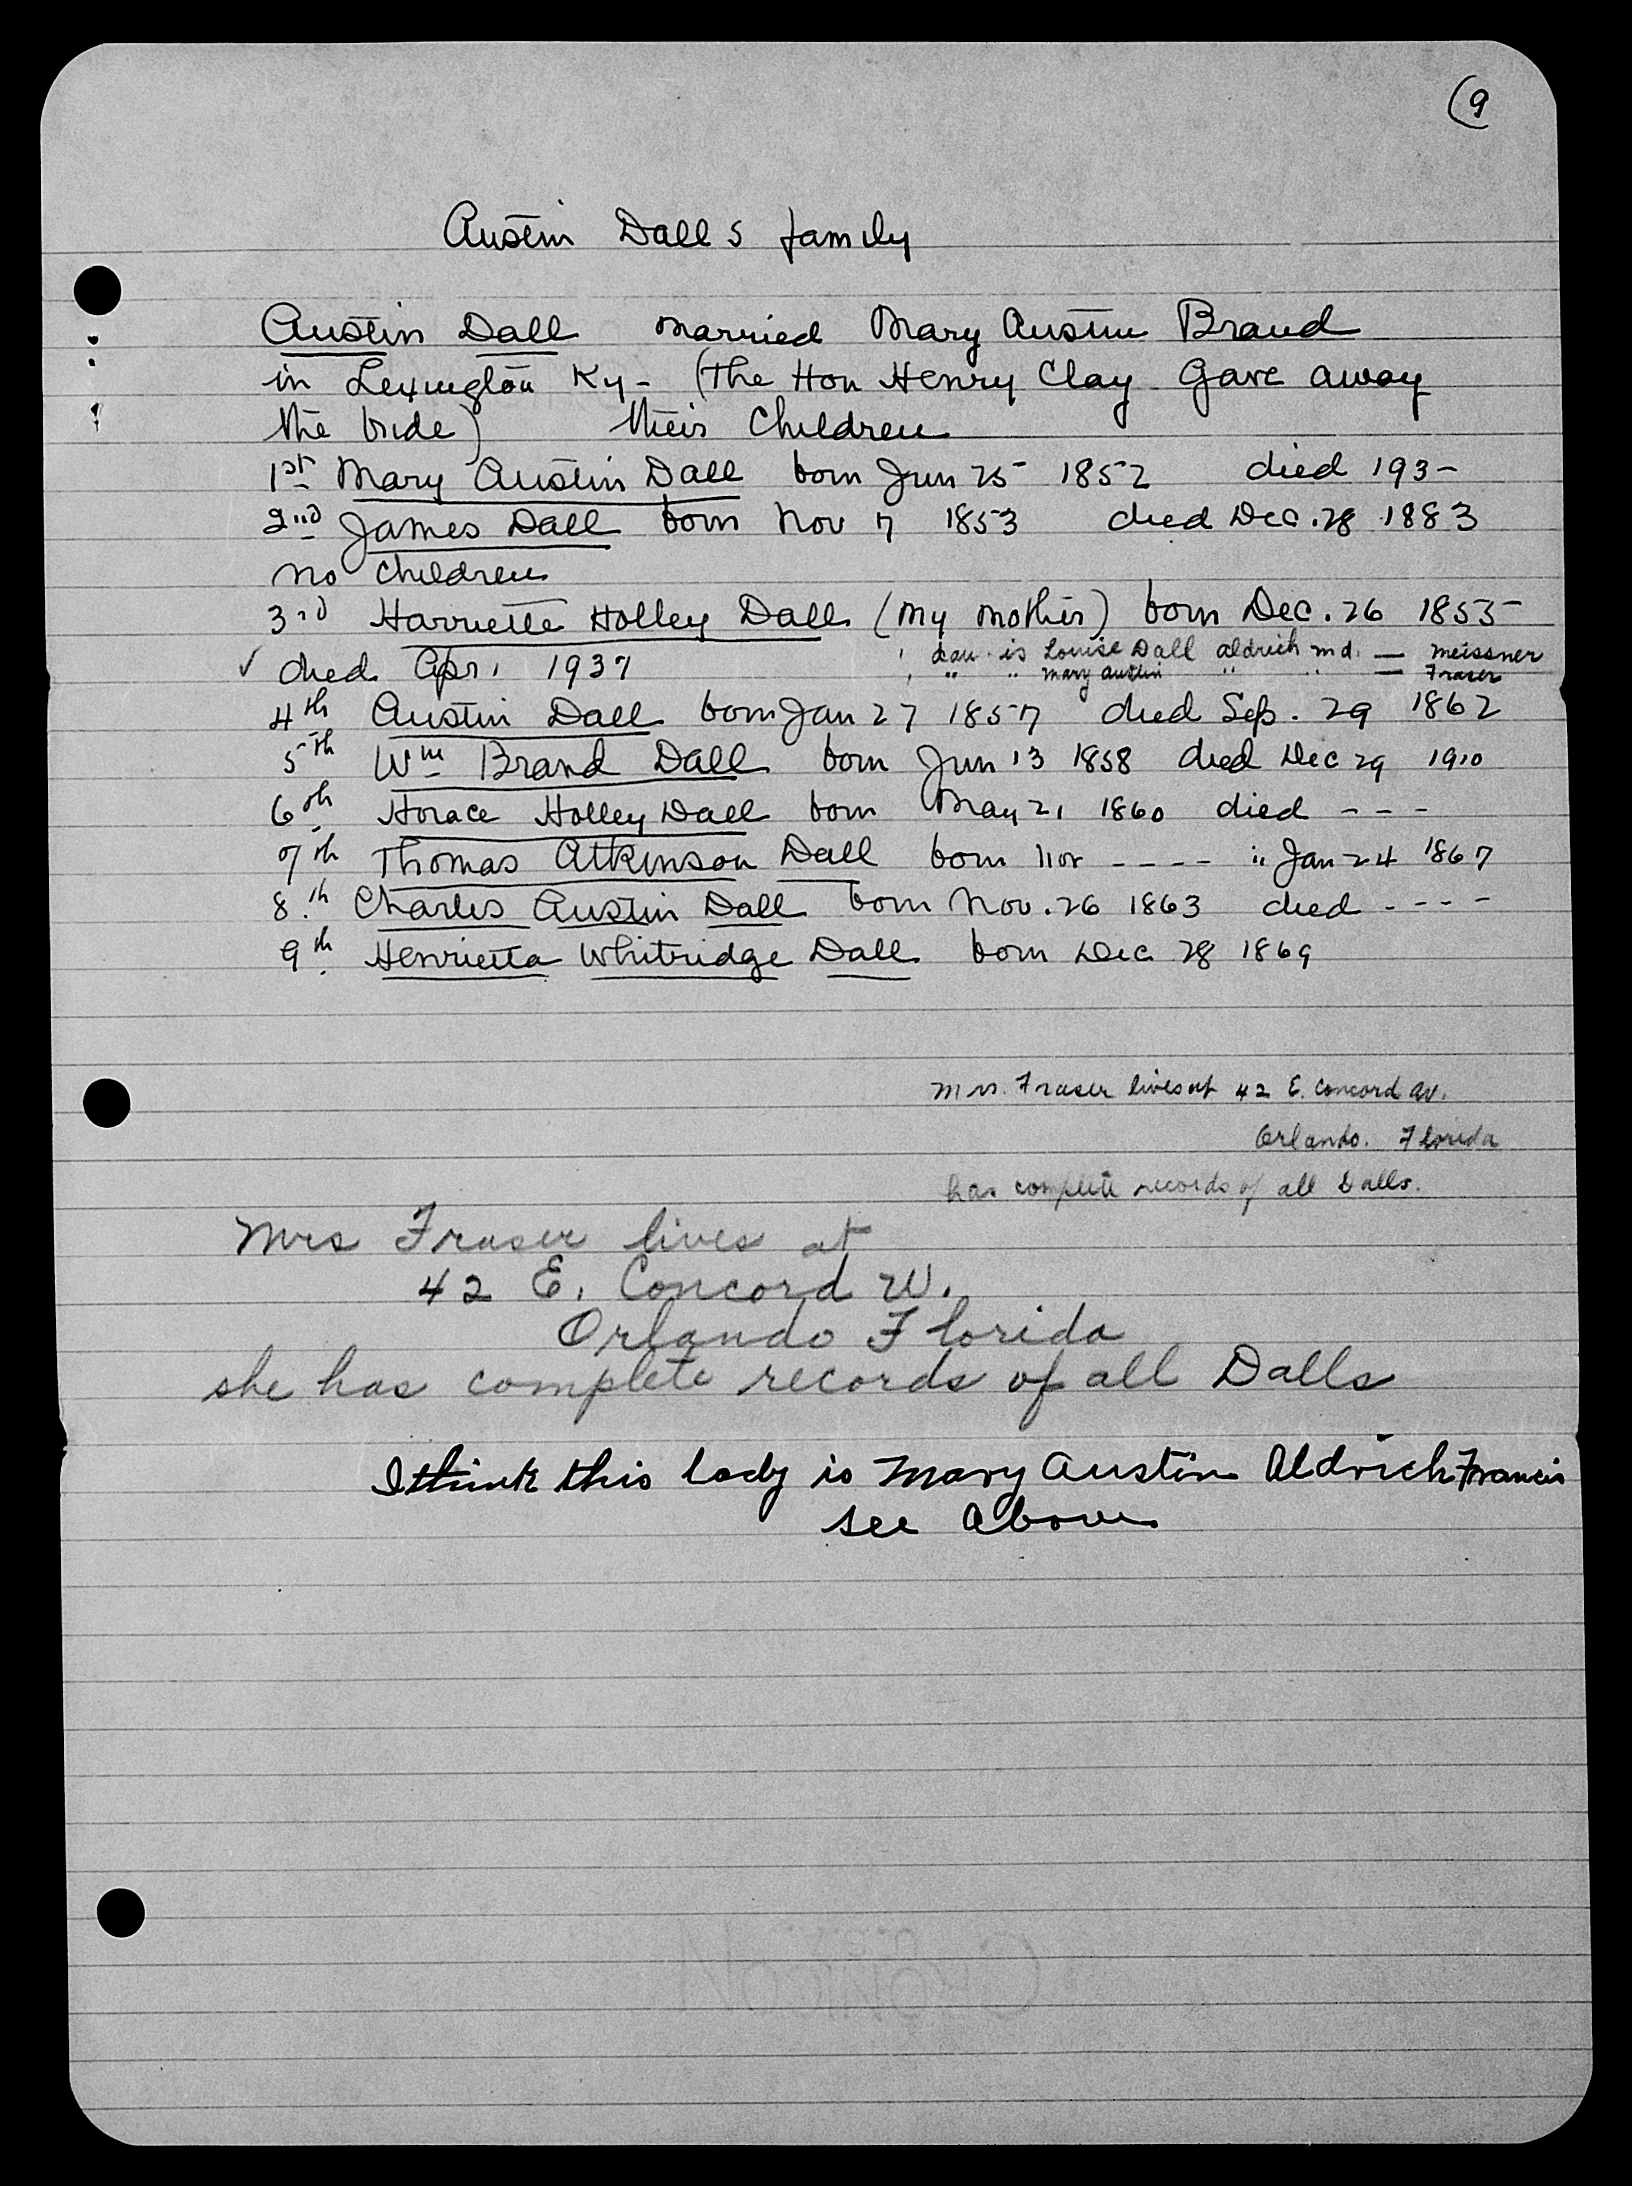 (9
Austin Dalls family
Austin Dall married Mary Austin Brand
in Lexington Ky- (The Hon Henry Clay Gave away
the bride) their Children
1st Mary Austin Dall born Jun 25 1852 died 193-
2nd James Dall born Nov 7 1853 died Dec. 28 1883
no children
3rd Harriette Holley Dall (my mother) born Dec. 26 1855
✓ died Apr. 1937
dau. is Louise Dall Aldrich md. — Meissner
" " " Mary Austin " " — Fraser
4th Austin Dall born Jan 27 1857 died Sep. 29 1862
5th Wm Brand Dall born Jun 13 1858 died Dec 29 1910
6th Horace Holley Dall born May 21 1860 died - - -
7th Thomas Atkinson Dall born nov - - - - " Jan 24 1867
8th Charles Austin Dall born Nov. 26 1863 died - - - -
9th Henrietta Whitridge Dall born Dec 28 1869
Mrs. Fraser lives at 42 E. Concord Av.
Orlando. Florida
has complete records of all Dalls.
Mrs Fraser lives at
42 E. Concord W.
Orlando Florida
she has complete records of all Dalls
I think this lady is Mary Austin Aldrich Francis
see above